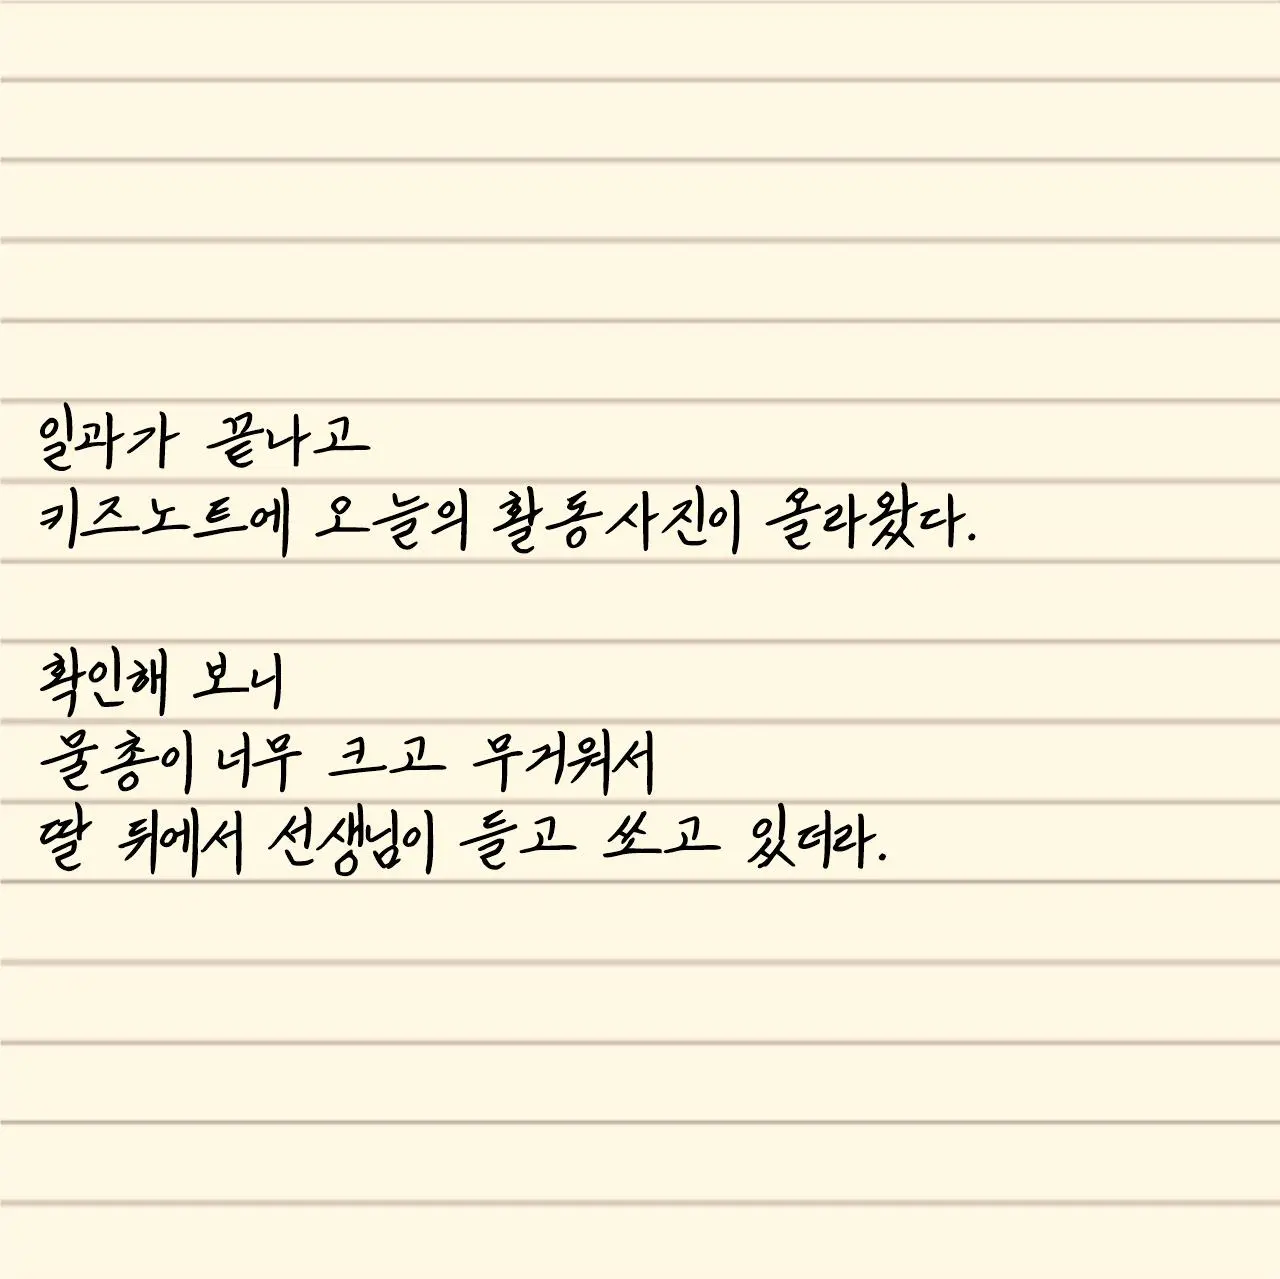 일과가 끝나고
키즈노트에 오늘의 활동사진이 올라왔다.
확인해 보니
물총이 너무 크고 무거워서
딸 뒤에서 선생님이 들고 쏘고 있더라.